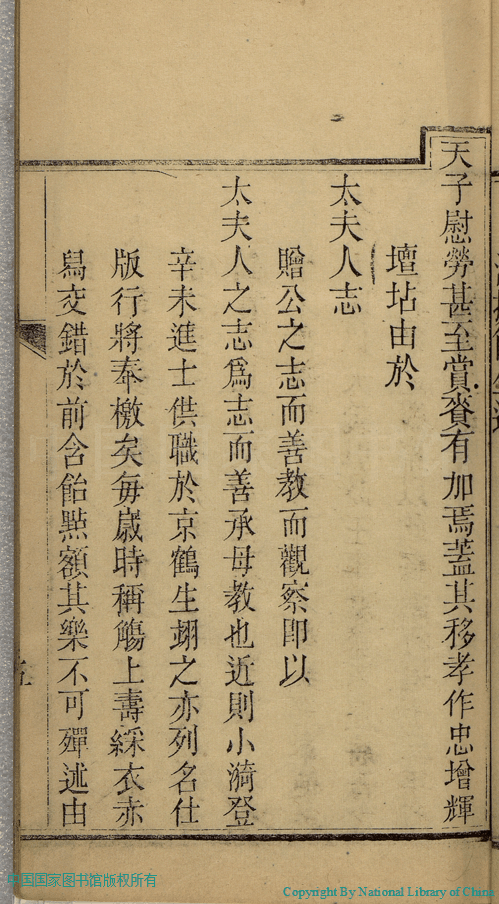 天子慰勞甚至賞賚有加焉蓋其移孝作忠增輝
壇坫由於
太夫人志
贈公之志而善教而觀察即以
太夫人之志爲志而善承母教也近則小漪登
辛未進士供職於京鶴生翊之亦列名仕
版行將奉檄矣每歲時稱觴上壽綵衣赤
舄交錯於前含飴㸃額其樂不可殫述由
中国国家图书馆版权所有
Copyright By National Library of China